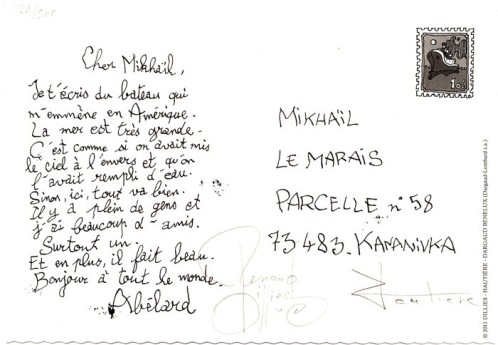 Cher Mikhaïl,
Je t'écris du bateau qui
m'emmène en Amérique.
La mer est très grande.
C'est comme si on avait mis
le ciel à l'envers et qu'on
l'avait rempli d'eau.
Sinon, ici, tout va bien.
Il y a plein de gens et
j'ai beaucoup d'amis.
Surtout un.
Et en plus, il fait beau.
Bonjour à tout le monde.
Abélard
MiKHAÏL
LE MARAiS
PARCELLE n°58
73483. KANANiVKA
Renaud
Dillies
Hautière
© 2011 DILLIES - HAUTIÈRE - DARGAUD BENELUX (Dargaud-Lombard s.a.)